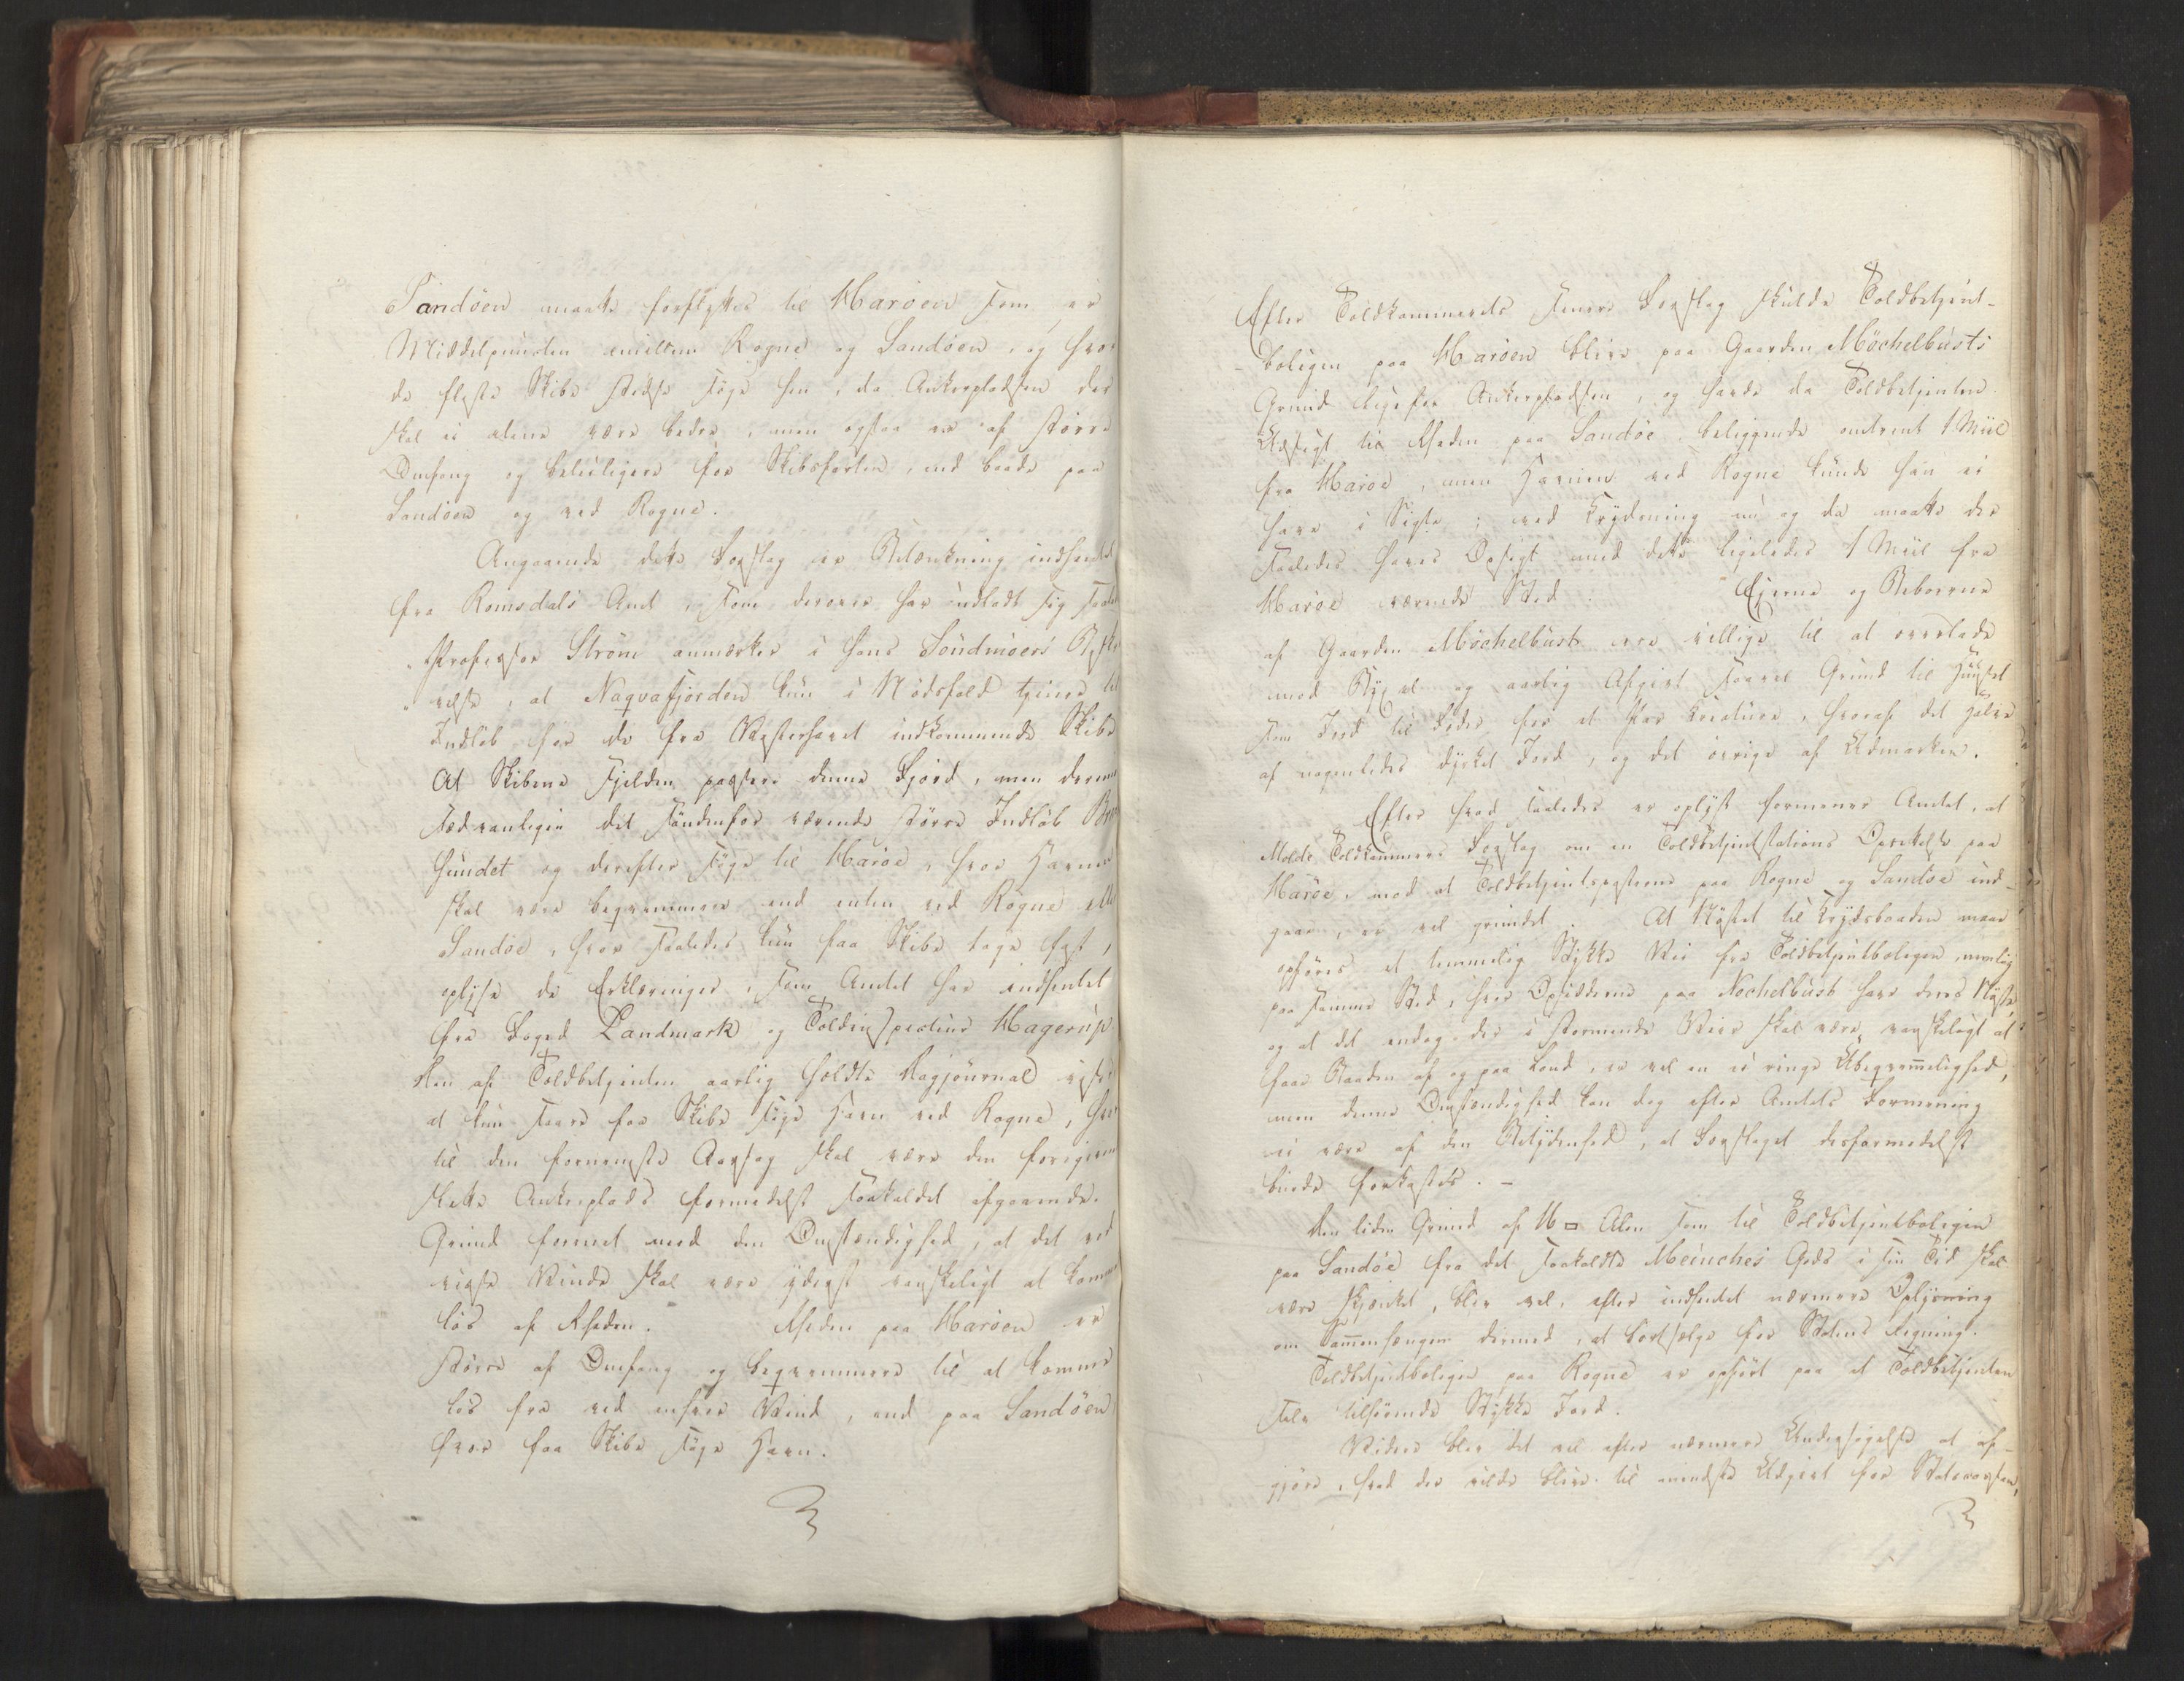 Sandöen maatte forflyttes til Haröen som er
Middelpuncten imellem Rogne og Sandöen, og hvor
de fleste Skibe stedse söge hen, da Ankerpladsen der
skal ei alene være bedre, men ogsaa er af större
Omfang og beleiligere for Skibsfarten, end baade paa
Sandöen og ved Rogne.
Angaaende dette Forslag er Betænkning indhentet
fra Romsdals Amt, som derover har indladt sig saaledes
"Professor Ström anmærker i hans Söndmöers
"velse, at Naqvafjorden kun i Nödsfald tjener til
Indlöb for de fra Vesterhavet indkommende Skibe
At Skibene sjelden passere denne Fjord, men derimod
sædvanligen det söndenfor værende större Indlöb
sundet og derefter söge til Haröe, hvor Havnen
skal være beqvemmere end enten ved Rogne eller
Sandöe, hvor saaledes kun faa Skibe tage fast,
oplyse de Erklæringer, som Amtet har indhentet
fra Foged Landmark og Toldinspecteur Hagerup.
Den af Toldbetjenten aarlig holdte Dagjournal viser
at kun saare faa Skibe söge Havn ved Rogne, hvor
til den fornemste Aarsag skal være den forigivne
slette Ankerplads formedelst saakaldet afgaaende
Grund forenet med den Omstændighed, at det ved
visse Vinde skal være yderst vanskeligt at komme
lös af Rheden. Rheden paa Haröen er
större af Omfang og beqvemmere til at komme
lös fra ved enhver Vind, end paa Sandöen
hvor faa Skibe söge Havn.
Efter Toldkammerets senere Forslag skulde Toldbetjent-
-boligen paa Haröen blive paa Gaarden Möchelbusts
Grund lige for Ankerpladsen, og havde da Toldbetjenten
Udsigt til Rheden paa Sandöe beliggende omtrent 1 Miil
fra Haröe, men Havnen ved Rogne kunde han ei
have i Sigte; ved Krydsning nu og da maatte der
saaledes haves Opsigt med dette ligeledes 1 Miil fra
Haröe værende Sted. Ejerne og Beboerne
af Gaarden Möchelbust ere villige til at overlade
mod Byxel og aarlig Afgivt saavel Grund til Huuset
som Jord til Föde for et Par Kreature, hvoraf det halve
af nogenledes dyrket Jord, og det övrige af Udmarken.
Efter hvad saaledes er oplyst formener Amtet, at
Molde Toldkammers Forslag om en Toldbetjentstations Oprettelse paa
Haröe, mod at Toldbetjentposterne paa Rogne og Sandöe ind-
gaae, er vel grundet. At Nöstet til Krydsbaaden maae
opföres et temmelig Stykke Vei fra Toldbetjentboligen, nemlig
paa samme Sted, hvor Opsidderne paa Nöchelbust have deres Nöste,
og at det endog der i stormende Veir skal være vanskeligt at
faae Baaden af og paa Land, er vel en ei ringe Ubeqvemmelighed,
men denne Omstændighed kan dog efter Amtets Formening
ei være af den Betydenhed, at Forslaget desformedelst
burde forkastes. -
Den liden Grund af 16 □ Alen som til Toldbetjentboligen
paa Sandöe fra det saakaldte Meinches Gods i sin Tid skal
være skjenket, blev vel, efter indhentet nærmere Oplysning
om Sammenhængen dermed, at bortsælge for Statens Regning.
Toldbetjentboligen paa Rogne er opfört paa et Toldbetjenten
selv tilhörende Stykke Jord.
Videre blev det vel efter nærmere Undersögelse at af-
gjöre, hvad der vilde blive til mindste Udgivt for Statscassen,